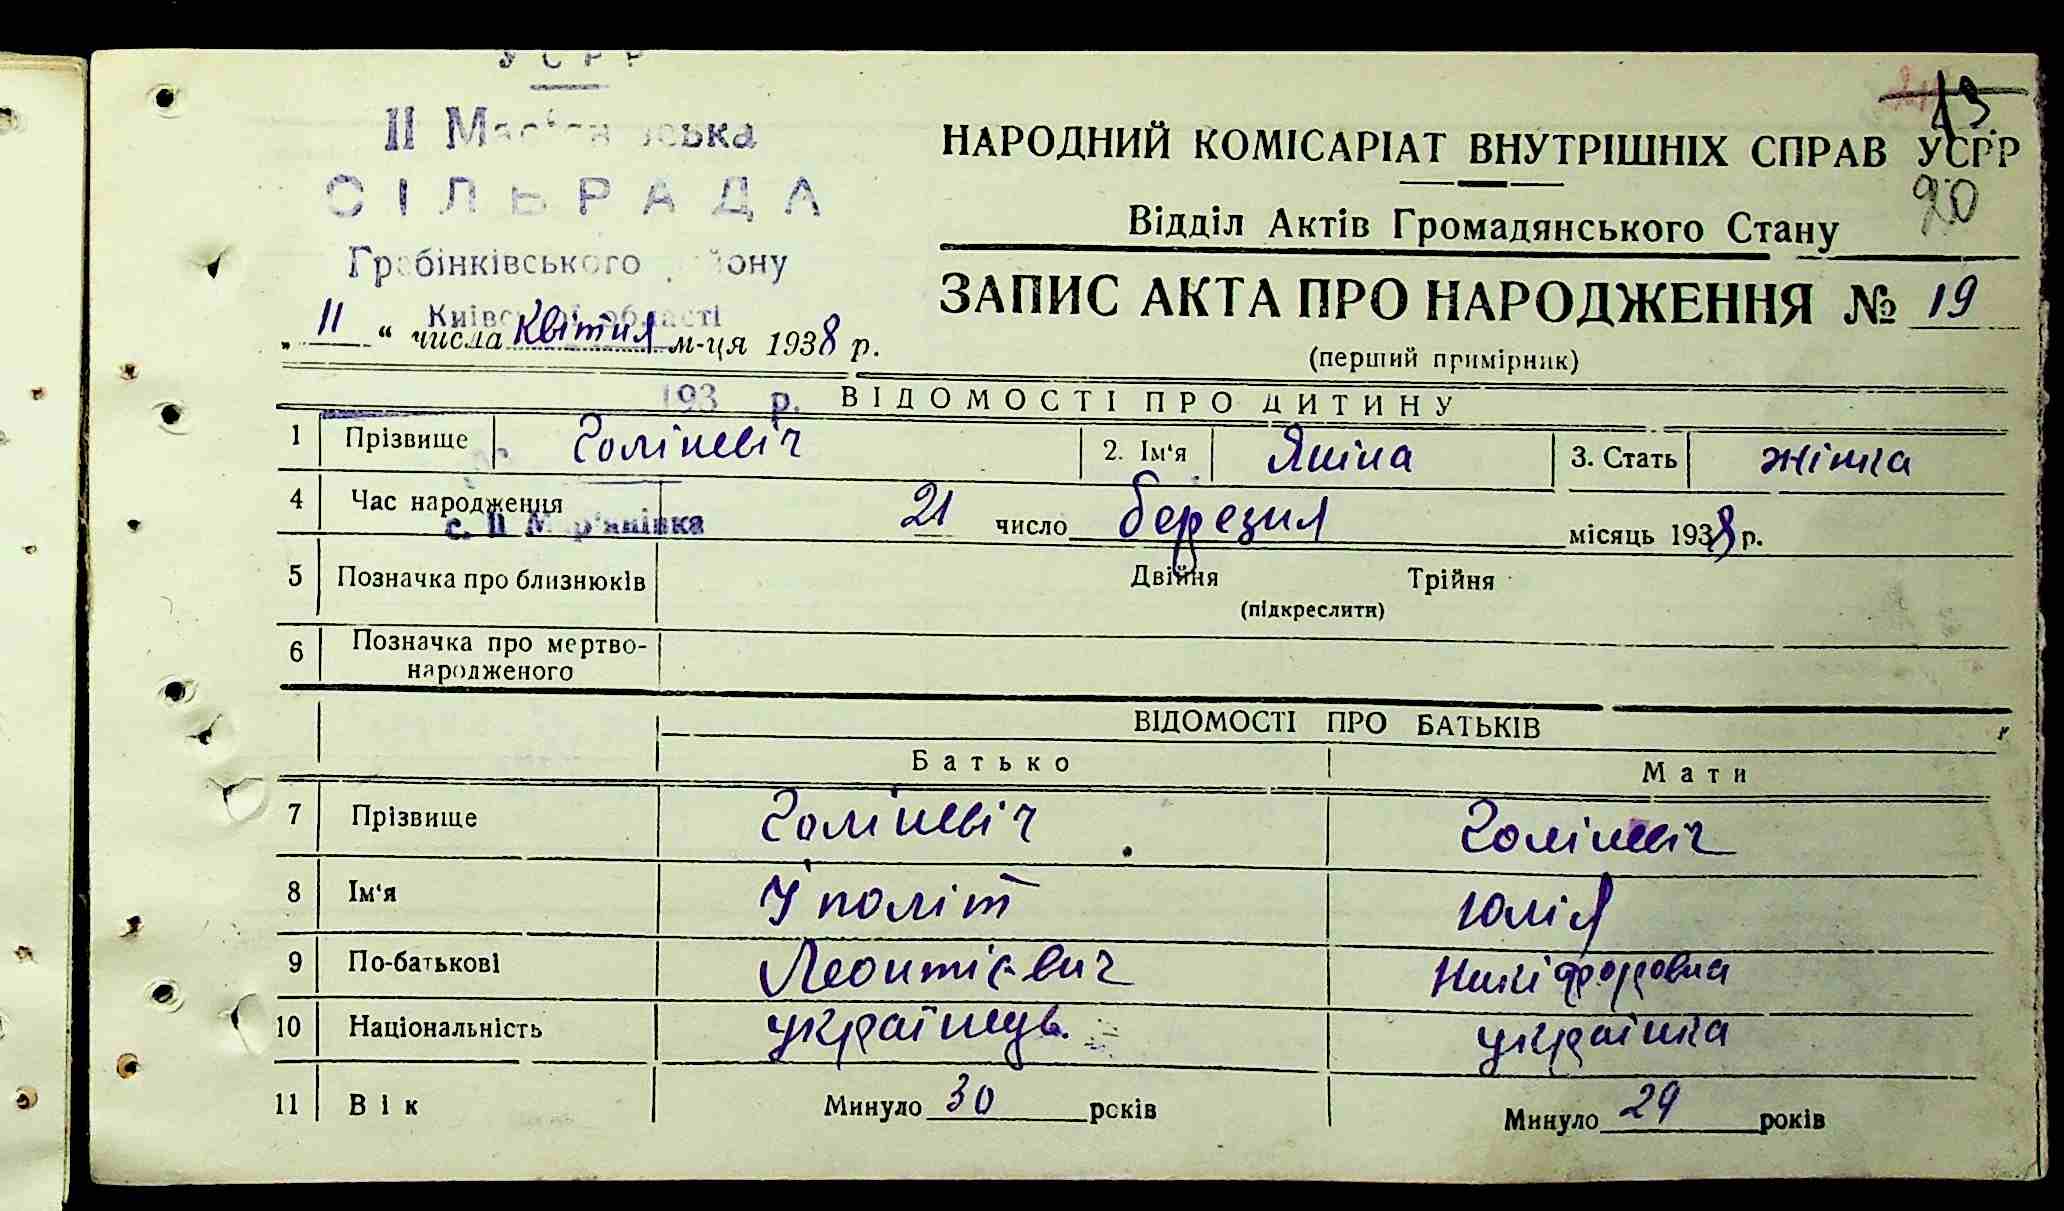 УСРР
ІІ Мар'янівська
СІЛЬРАДА
Гребінківського району
Київської області
„ 11 “ числа квітня м-ця 1938 р.
193 р.
с. ІІ Мар'янівка
13
20
НАРОДНИЙ КОМІСАРІАТ ВНУТРІШНІХ СПРАВ УСРР
Відділ Актів Громадянського Стану
ЗАПИС АКТА ПРО НАРОДЖЕННЯ № 19
(перший примірник)
ВІДОМОСТІ ПРО ДИТИНУ
1 Прізвище Голіневіч 2. Ім'я Яніна 3. Стать жінка
4 Час народження 21 число березня місяць 1938 р.
5 Позначка про близнюків Двійня Трійня
(підкреслити)
6 Позначка про мертво-
народженого
ВІДОМОСТІ ПРО БАТЬКІВ
Батько Мати
7 Прізвище Голіневіч Голіневіч
8 Ім'я Іполіт Юлія
9 По-батькові Леонтієвич Никіфоровна
10 Національність українець українка
11 Вік Минуло 30 років Минуло 29 років